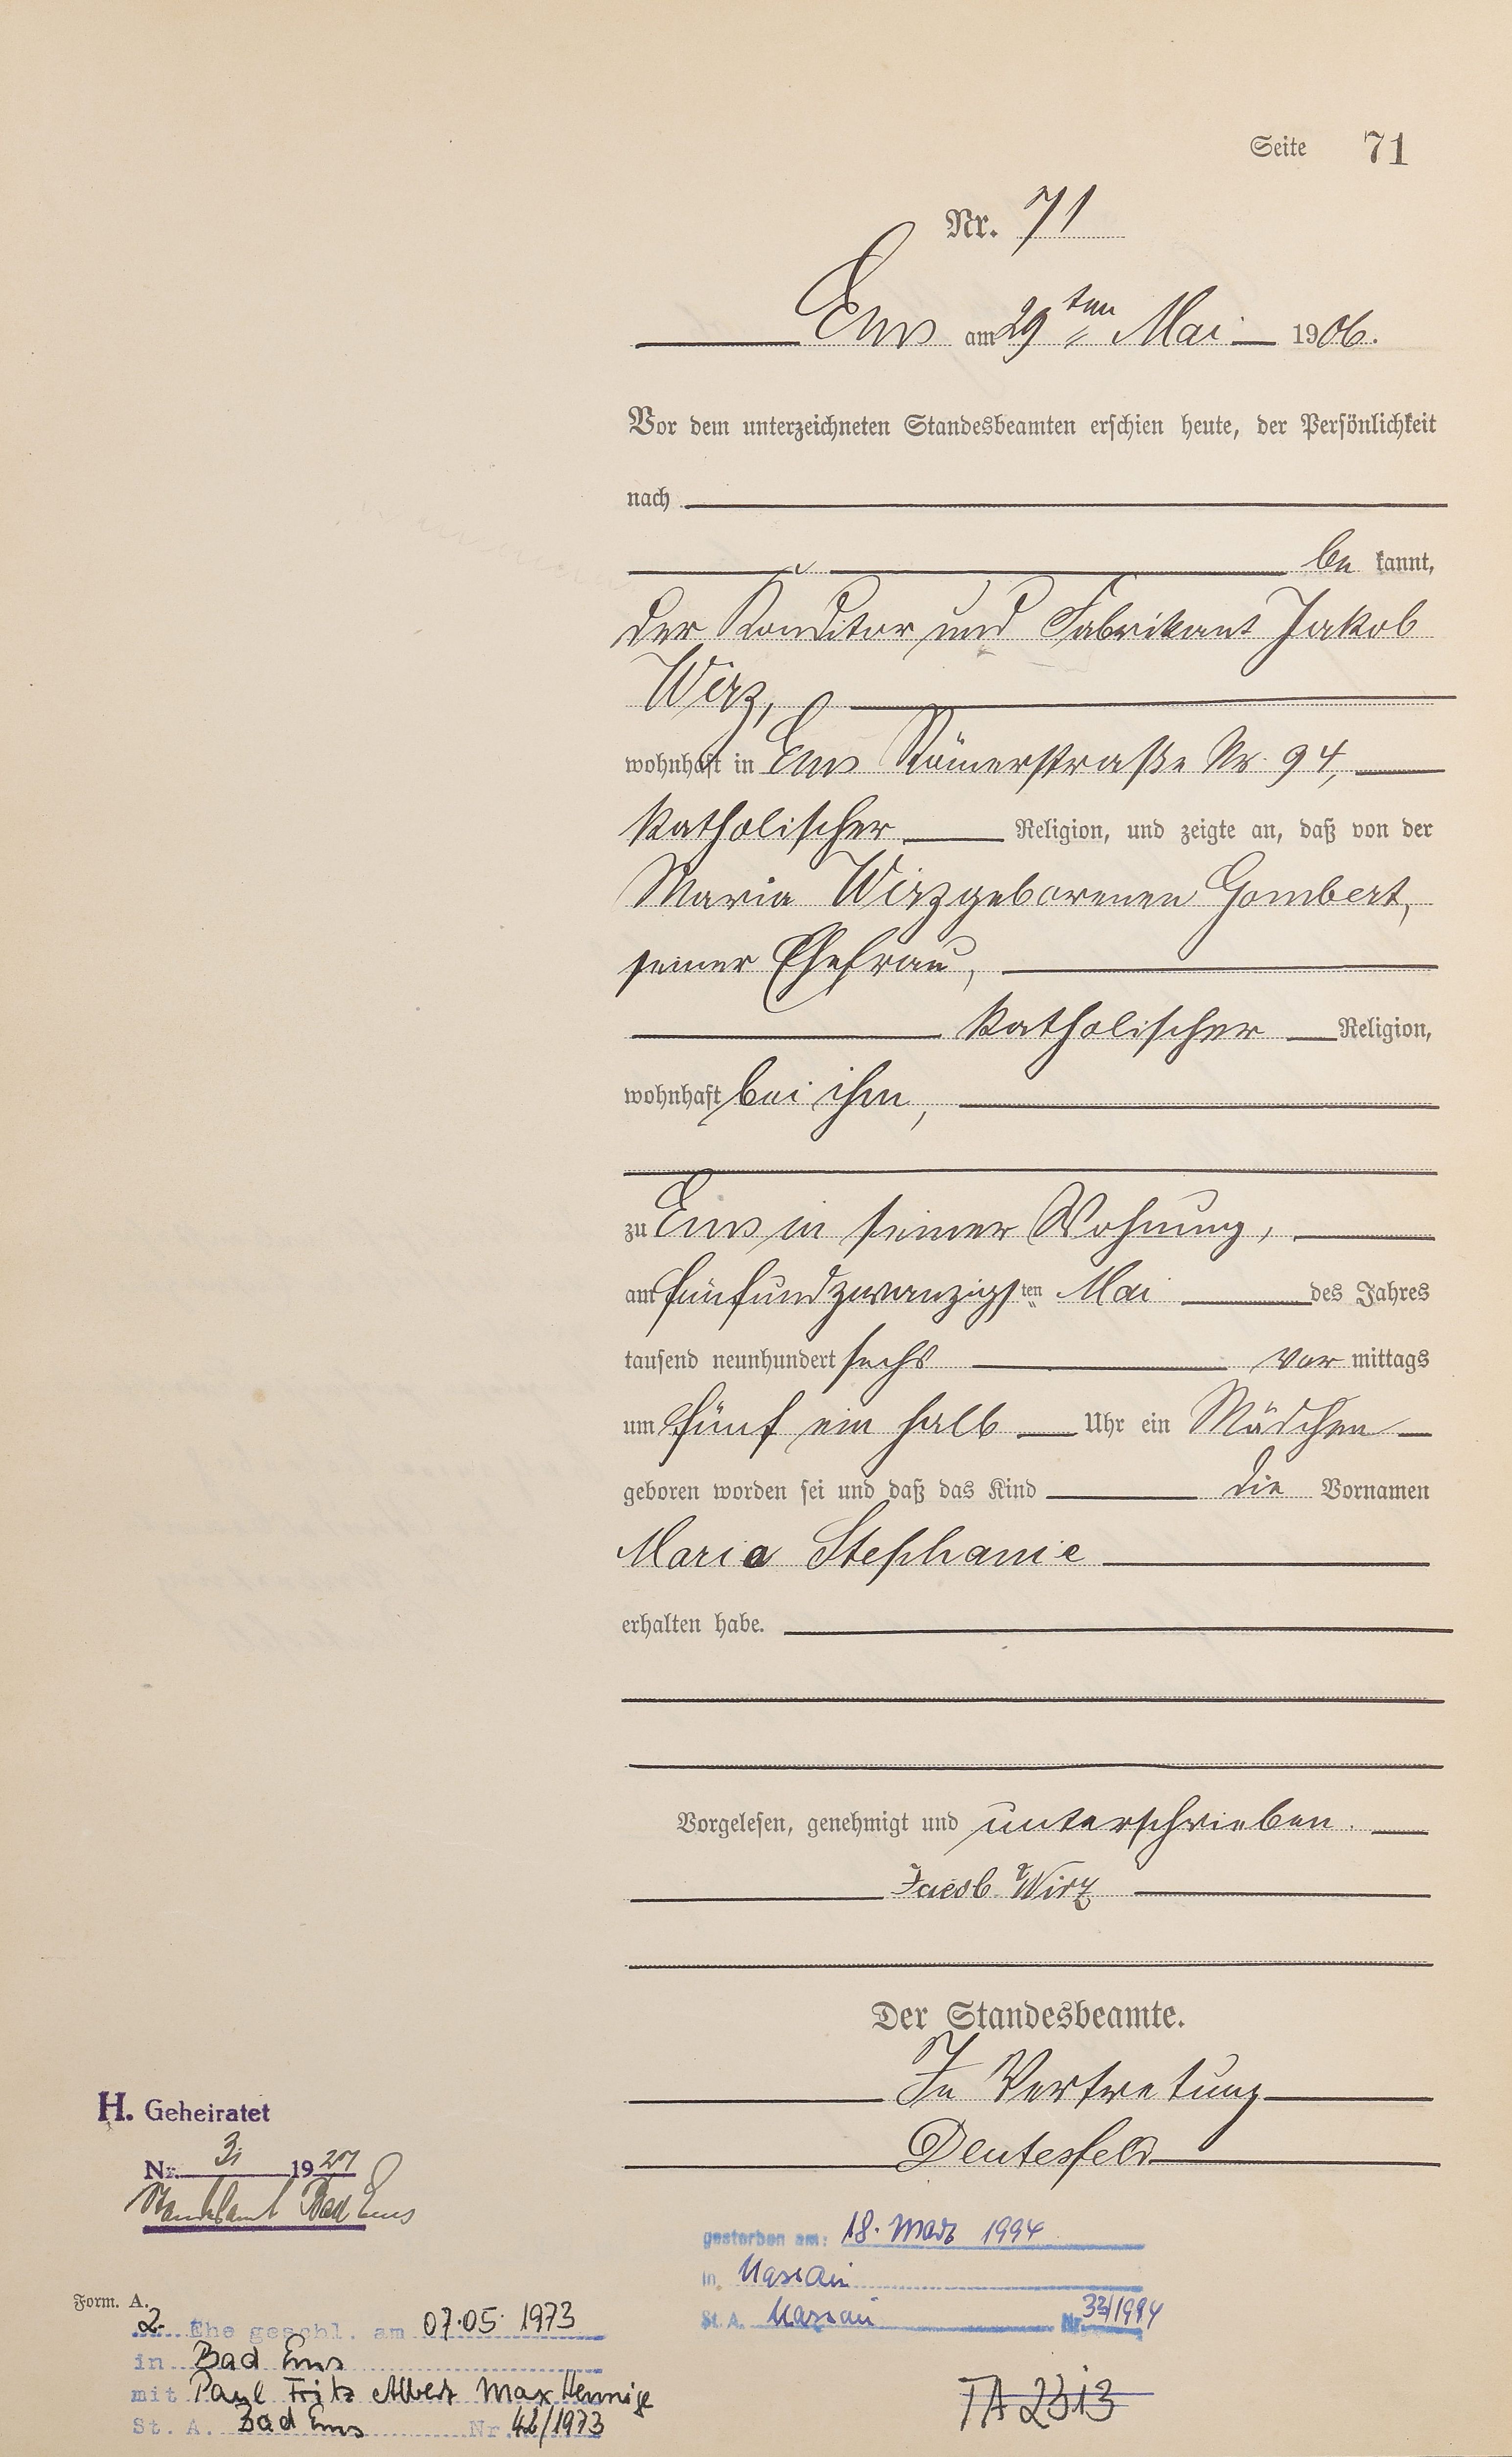 Seite 71
Nr. 71
Ems am 29ten Mai 1906.
Vor dem unterzeichneten Standesbeamten erschien heute, der Persönlichkeit
nach
be kannt,
der Konditor und Fabrikant Jakob
Wirz,
wohnhaft in Ems Römerstraße Nr. 94,
katholischer Religion, und zeigte an, daß von der
Maria Wirz geborenen Gombert,
seiner Ehefrau,
katholischer Religion,
wohnhaft bei ihm,
zu Ems in seiner Wohnung,
am fünfundzwanzigsten Mai des Jahres
tausend neunhundert sechs vor mittags
um fünf ein halb Uhr ein Mädchen
geboren worden sei und daß das Kind die Vornamen
Maria Stephanie
erhalten habe.
Vorgelesen, genehmigt und unterschrieben.
Jacob Wirz
Der Standesbeamte.
In Vertretung
Deutesfeld
H. Geheiratet
Nr. 19
Standesamt Bad Ems
gestorben am: 18. März 1994
in Nassau
St. A. Nassau Nr. 33/1994
Form. A.
2. Ehe geschl. am 07.05.1973
in Bad Ems
mit Paul Fritz Albert Max Hennige
St. A. Bad Ems Nr. 42/1973
TA 2313